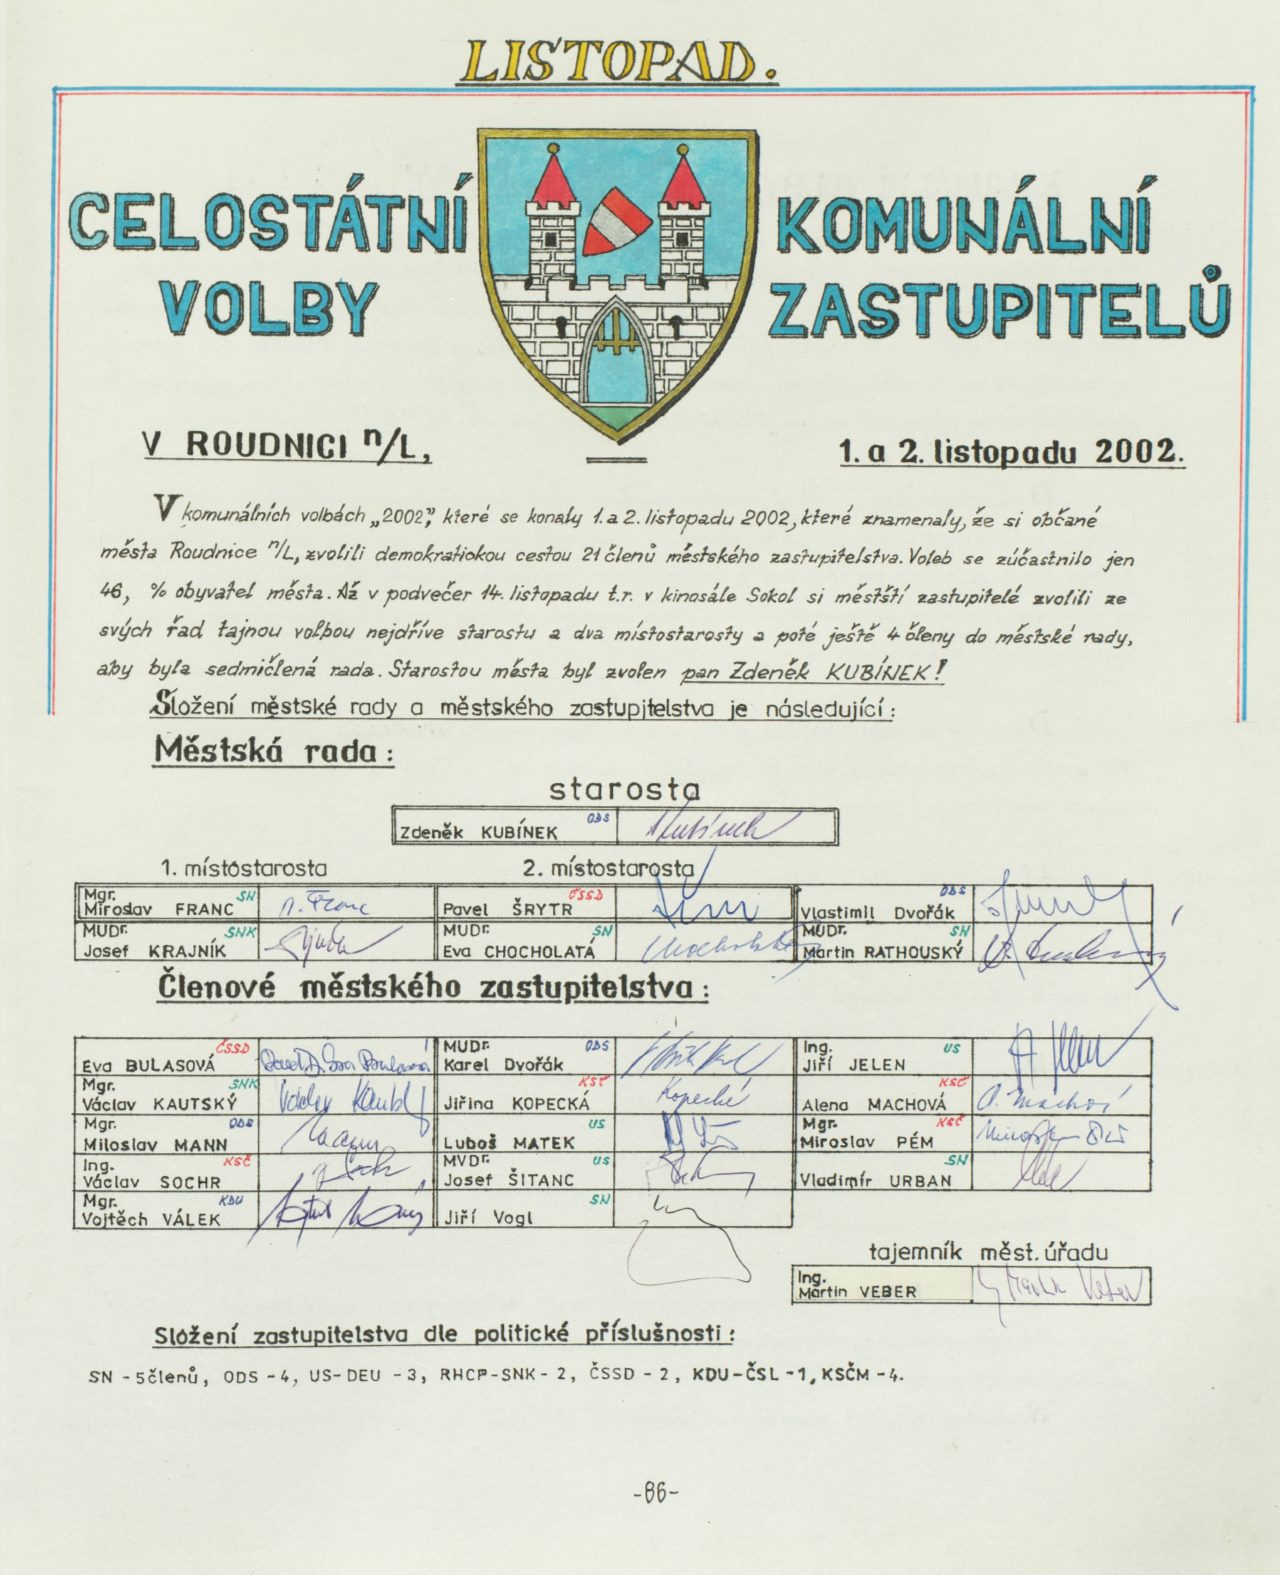 LISTOPAD.
CELOSTÁTNÍ KOMUNÁLNÍ
VOLBY ZASTUPITELŮ
V ROUDNICI n/L, 1. a 2. listopadu 2002.
V komunálních volbách „2002", které se konaly 1. a 2. listopadu 2002, které znamenaly, že si občané
města Roudnice n/L, zvolili demokratickou cestou 21 členů městského zastupitelstva. Voleb se zúčastnilo jen
46, % obyvatel města. Až v podvečer 14. listopadu t.r. v kinosále Sokol si městští zastupitelé zvolili ze
svých řad tajnou volbou nejdříve starostu a dva místostarosty a poté ještě 4 členy do městské rady,
aby byla sedmičlená rada. Starostou města byl zvolen pan Zdeněk KUBÍNEK!
Složení městské rady a městského zastupitelstva je následující:
Městská rada:
starosta
Zdeněk KUBÍNEK ODS Kubínek
1. místostarosta 2. místostarosta
Mgr. SN ČSSD ODS
Miroslav FRANC M. Franc Pavel ŠRYTR Vlastimil Dvořák
MUDr. SNK MUDr. SN MUDr. SN
Josef KRAJNÍK Eva CHOCHOLATÁ Chocholatá Martin RATHOUSKÝ
Členové městského zastupitelstva:
ČSSD MUDr. ODS Ing. US
Eva BULASOVÁ Eva Bulasová Karel Dvořák Jiří JELEN
Mgr. SNK KSČ KSČ
Václav KAUTSKÝ Václav Kautský Jiřina KOPECKÁ Kopecká Alena MACHOVÁ A. Machová
Mgr. ODS US Mgr. KSČ
Miloslav MANN Luboš MATEK Miroslav PÉM
Ing. KSČ MVDr. US SN
Václav SOCHR Josef ŠITANC Vladimír URBAN
Mgr. KDU SN
Vojtěch VÁLEK Jiří Vogl
tajemník měst. úřadu
Ing.
Martin VEBER Martin Veber
Složení zastupitelstva dle politické příslušnosti:
SN - 5členů, ODS - 4, US-DEU - 3, RHCP-SNK - 2, ČSSD - 2, KDU-ČSL - 1, KSČM - 4.
-86-